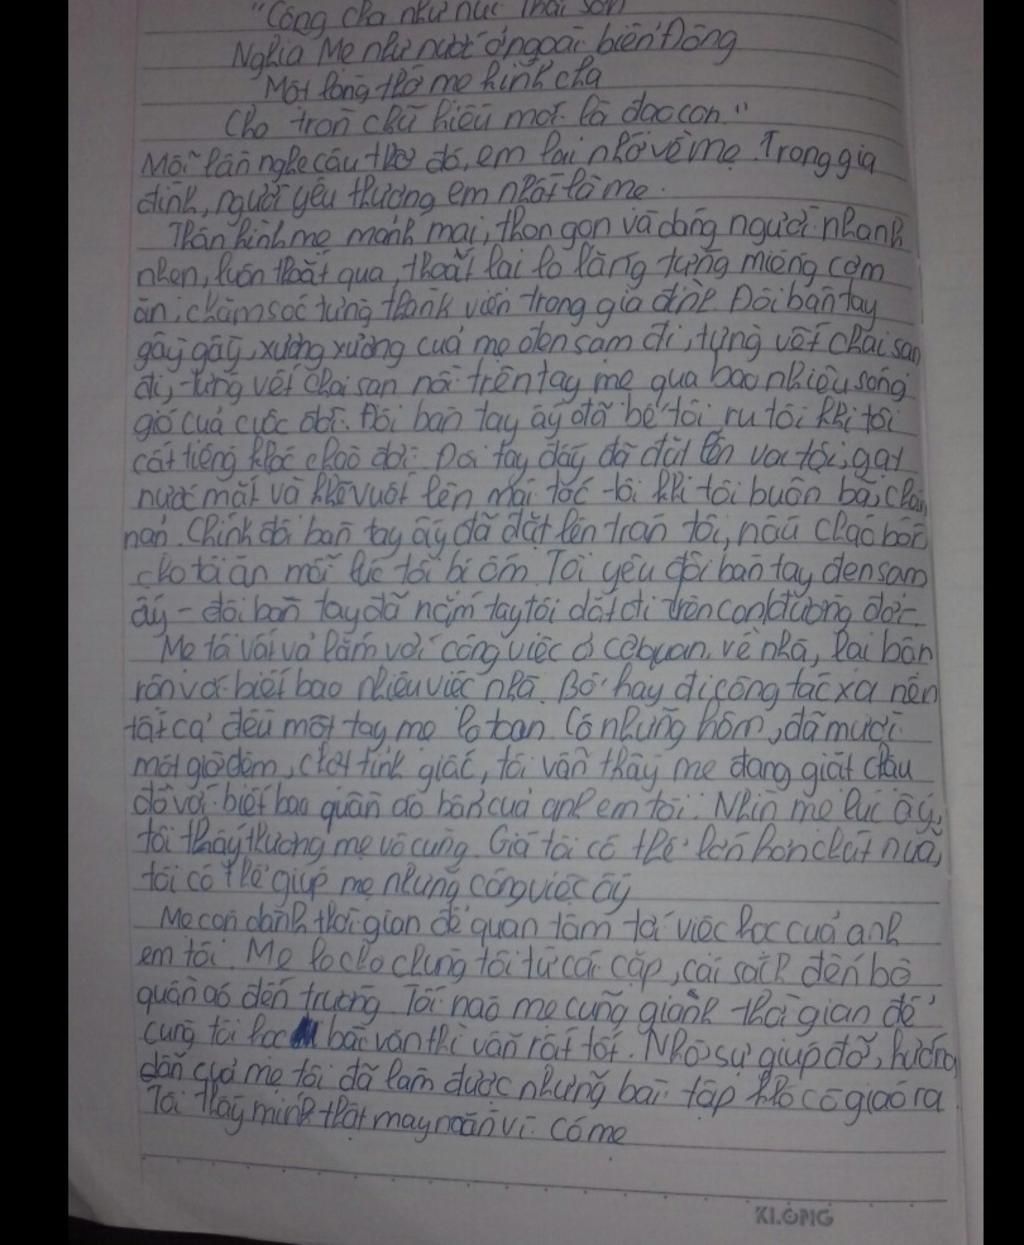 "Công cha như núi Thái Sơn
Nghĩa Mẹ như nước ở ngoài biển Đông
Một lòng thờ mẹ kính cha
Cho tròn chữ hiếu mới là đạo con"
Mỗi lần nghe câu thơ đó, em lại nhớ về mẹ. Trong gia
đình, người yêu thương em nhất là mẹ.
Thân hình mẹ mảnh mai, thon gọn và dáng người nhanh
nhẹn, luôn thoắt qua, thoắt lại lo lắng từng miếng cơm
ăn, chăm sóc từng thành viên trong gia đình. Đôi bàn tay
gầy gầy, xương xương của mẹ đen sạm đi, từng vết chai sạn
đi, từng vết chai sạn nổi trên tay mẹ qua bao nhiêu sóng
gió của cuộc đời. Đôi bàn tay ấy đã bế tôi ru tôi khi tôi
cất tiếng khóc chào đời. Đôi tay đấy đã đặt lên vai tôi, gạt
nước mắt và khẽ vuốt lên mái tóc tôi khi tôi buồn bã, chán
nản. Chính đôi bàn tay ấy đã đặt lên trán tôi, nấu cháo bón
cho tôi ăn mỗi lúc tôi bị ốm. Tôi yêu đôi bàn tay đen sạm
ấy - đôi bàn tay đã nắm tay tôi dắt đi trên con đường đời.
Mẹ tôi vất vả lắm với công việc ở cơ quan, về nhà, lại bận
rộn với biết bao nhiêu việc nhà. Bố hay đi công tác xa nên
tất cả đều một tay mẹ lo toan. Có những hôm, đã mười
một giờ đêm, chợt tỉnh giấc, tôi vẫn thấy mẹ đang giặt chậu
đồ với biết bao quần áo bẩn của anh em tôi. Nhìn mẹ lúc ấy,
tôi thấy thương mẹ vô cùng. Giá tôi có thể lớn hơn chút nữa,
tôi có thể giúp mẹ những công việc ấy
Mẹ còn dành thời gian để quan tâm tới việc học của anh
em tôi. Mẹ lo cho chúng tôi từ cái cặp, cái sách đến bộ
quần áo đến trường. Tối nào mẹ cũng giành thời gian để
cùng tôi học bài văn thì vẫn rất tốt. Nhờ sự giúp đỡ, hướng
dẫn của mẹ tôi đã làm được những bài tập khó cô giáo ra
Tôi thấy mình thật may mắn vì có mẹ
KLONG